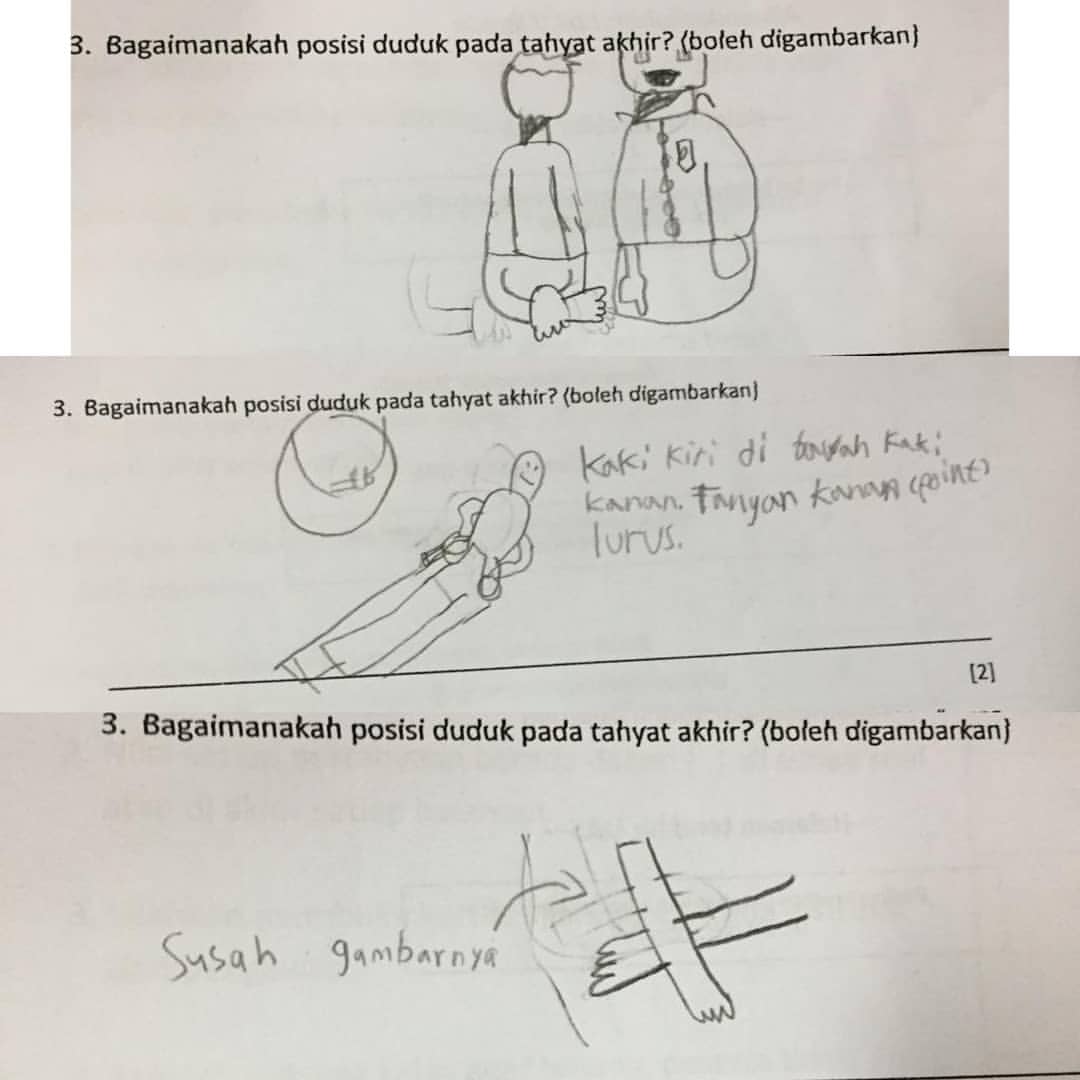 3. Bagaimanakah posisi duduk pada tahyat akhir? (boleh digambarkan}
3. Bagaimanakah posisi duduk pada tahyat akhir? (boleh digambarkan}
kaki kiri di bawah kaki
kanan. Tanyan kanan (point)
lurus.
[2]
3. Bagaimanakah posisi duduk pada tahyat akhir? (boleh digambarkan}
Susah gambarnya